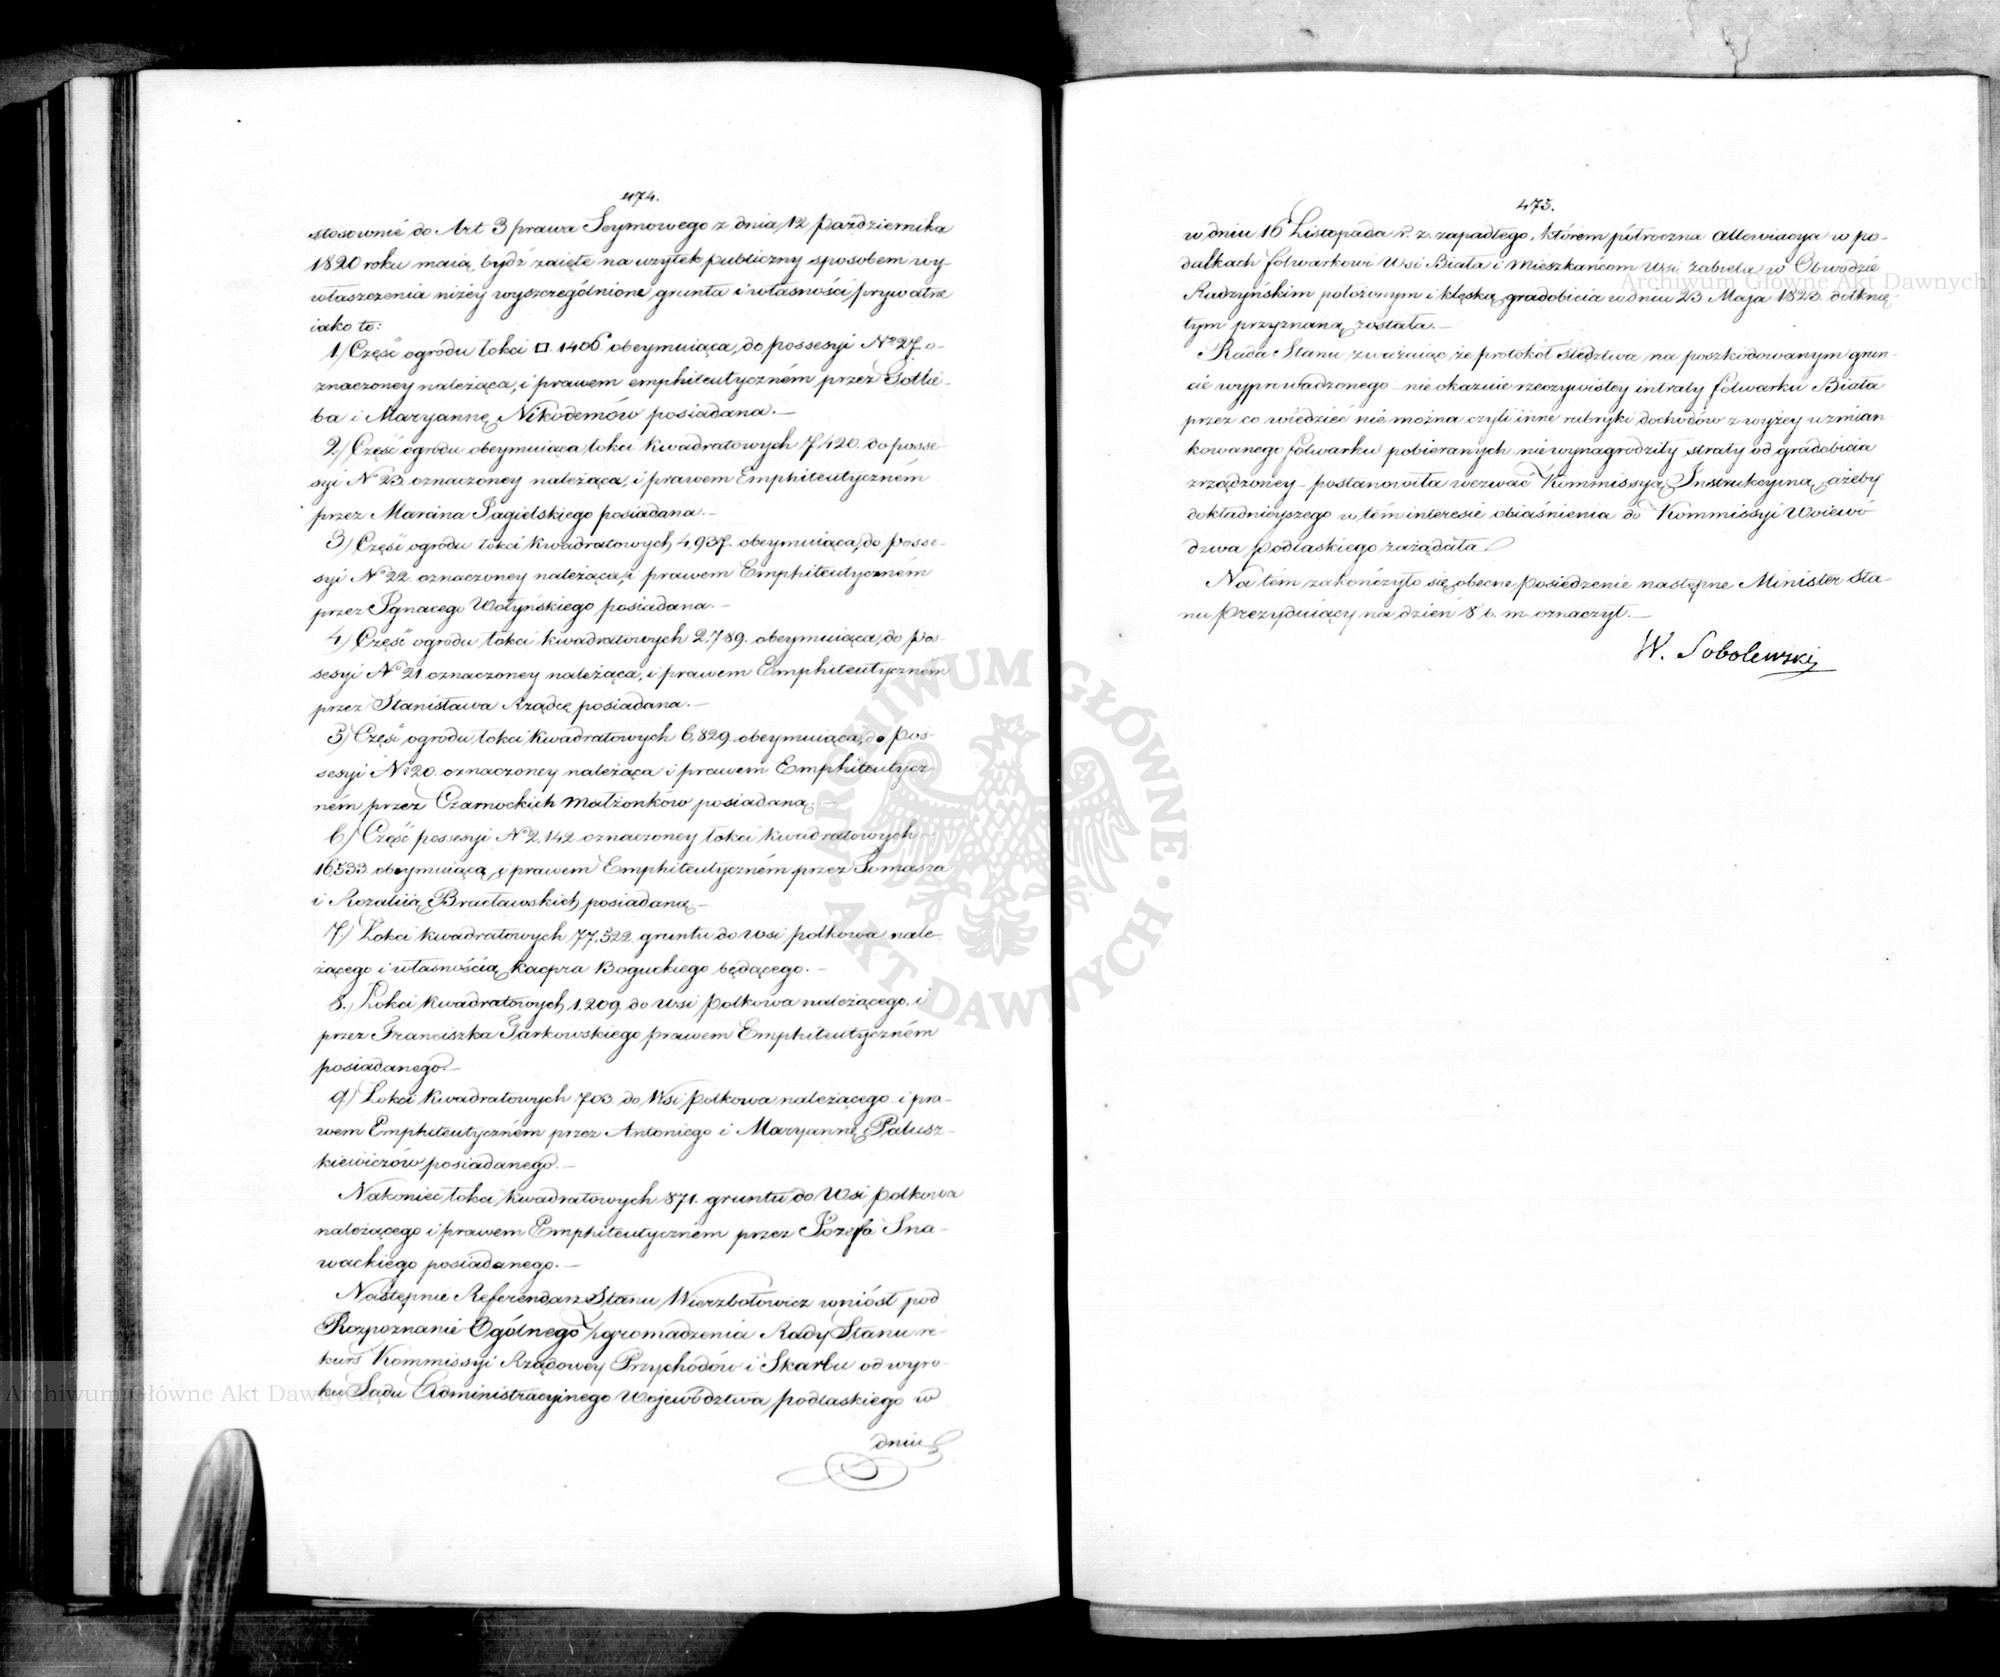 474.
stosownie do Art 3 prawa Seymowego z dnia 12 Października
1820 roku maią bydź zaięte na użytek publiczny sposobem wy
właszczenia niżey wyszczególnione grunta i własności prywatne
iako to:
1) Część ogrodu łokci □. 1406 obeymuiąca, do possesyi No 27. o-
znaczoney należąca, i prawem emphiteutyczném przez Gotlie-
ba i Maryannę Nikodemów posiadana.—
2) Część ogrodu obeymuiąca łokci kwadratowych 7,420. do posse-
syi No 23. oznaczoney należąca, i prawem Emphiteutyczném
przez Marcina Jagielskiego posiadana.—
3) Część ogrodu łokci kwadratowych 4,937. obeymuiąca, do posse-
syi No 22. oznaczoney należąca, i prawem Emphiteutyczném
przez Ignacego Wołyńskiego posiadana.—
4) Część ogrodu łokci kwadratowych 2,789. obeymuiąca, do pos-
sesyi No 21. oznaczoney należąca, i prawem Emphiteutyczném
przez Stanisława Rządcę posiadana.—
5) Część ogrodu łokci kwadratowych 6,829. obeymuiąca, do pos-
sesyi No 20. oznaczoney należąca i prawem Emphiteutycz-
ném przez Czarnockich małżonków posiadaną.—
6) Część possesyi No 2,142 oznaczoney łokci kwadratowych
16,533. obeymuiącą i prawem Emphiteutyczném przez Tomasza
i Rozaliią Bracławskich posiadaną—
7.) Łokci kwadratowych 77,322 gruntu do Wsi Polkowa nale-
żącego i własnością Kacpra Boguckiego będącego.—
8.) Łokci kwadratowych 1,209. do Wsi Polkowa należącego, i
przez Franciszka Jarkowskiego prawem Emphiteutyczném
posiadanego—
9.) Łokci kwadratowych 703. do Wsi Polkowa należącego i pra-
wem Emphiteutyczném przez Antoniego i Maryannę Palusz-
kiewiczów posiadanego.—
Nakoniec łokci kwadratowych 871. gruntu do Wsi Polkowa
należącego i prawem Emphiteutyczném przez Józefa Sna-
wackiego posiadanego.—
Następnie Referendarz Stanu Wierzbołowicz wniósł pod
Rozpoznanie Ogólnego Zgromadzenia Rady Stanu re-
kurs Kommissyi Rządowey Przychodów i Skarbu od wyro-
ku Sądu Administracyjnego Województwa podlaskiego w
dniu
475.
w dniu 16 Listopada r. z. zapadłego, którem półroczna allewiacya w po-
datkach folwarkowi Wsi Biała i Mieszkańcom Wsi Zabiela w Obwodzie
Radzyńskim położonym i klęską gradobicia w dniu 23 Maja 1823. dotknię-
tym przyznaną została.—
Rada Stanu zważaiąc że protokół śledztwa na poszkodowanym grun-
cie wyprowadzonego nie okazuie rzeczywistey intraty folwarku Biała
przez co wiedzieć nie można czyli inne rubryki dochodów z wyżey wzmian
kowanego folwarku pobieranych nie wynagrodziły straty od gradobicia
zrządzoney—postanowiła wezwać Kommissyą Instrukcyjną, ażeby
dokładnieyszego w tém interesie obiaśnienia do Kommissyi Woiewó
dzwa podlaskiego zażądała
Na tém zakończyło się obecne posiedzenie następne Minister Sta-
nu Prezyduiący na dzień 8 b. m. oznaczył.—
W. Sobolewski
Archiwum Główne Akt Dawnych
Archiwum Główne Akt Dawnych
ARCHIWUM GŁÓWNE AKT DAWNYCH